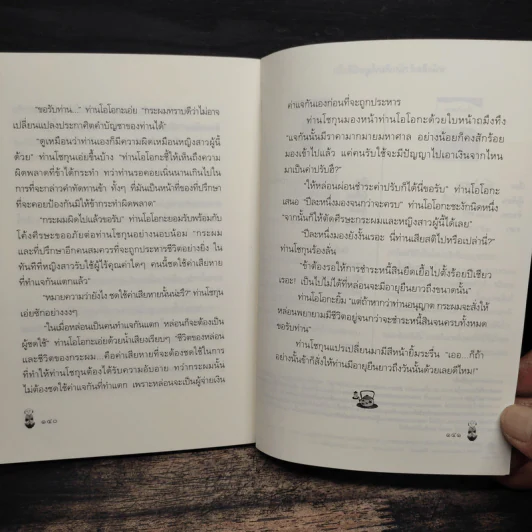 "ขอรับท่าน..." ท่านโอโอกะเอ่ย "กระผมทราบดีว่าไม่อาจ
เปลี่ยนแปลงประกาศิตคำบัญชาของท่านได้"
"ดูเหมือนว่าท่านเองก็มีความผิดเหมือนหญิงสาวผู้นี้
ด้วย" ท่านโชกุนเอ่ยขึ้นบ้าง "ท่านโอโอกะชี้ให้เห็นถึงความ
ผิดพลาดที่ข้าได้กระทำ ทว่าท่านรอคอยเนิ่นนานเกินไปใน
การที่จะกล่าวคำทัดทานข้า ทั้งๆ ที่มันเป็นหน้าที่ของที่ปรึกษา
ที่จะคอยป้องกันมิให้ข้ากระทำผิดพลาด"
"กระผมผิดไปแล้วขอรับ" ท่านโอโอกะยอมรับพร้อมกับ
โค้งศีรษะขออภัยต่อท่านโชกุนอย่างนอบน้อม "กระผม
และที่ปรึกษาอีกคนสมควรที่จะถูกประหารชีวิตอย่างยิ่ง ใน
ทันทีที่หญิงสาวรับใช้ผู้ไร้คุณค่าใดๆ คนนี้ชดใช้ค่าเสียหาย
ที่ทำแจกันแตกแล้ว"
"หมายความว่ายังไง ชดใช้ค่าเสียหายนั้นน่ะรึ?" ท่านโชกุน
เอ่ยซักอย่างงงๆ
"ในเมื่อหล่อนเป็นคนทำแจกันแตก หล่อนก็จะต้องเป็น
ผู้ชดใช้" ท่านโอโอกะเอ่ยด้วยน้ำเสียงเรียบๆ "ชีวิตของหล่อน
และชีวิตของกระผม...คือค่าเสียหายที่จะต้องชดใช้ในการ
ที่ทำให้ท่านโชกุนต้องได้รับความอับอาย...ทว่ากระผมนั้น
ไม่ต้องชดใช้ค่าแจกันที่ทำแตก เพราะหล่อนจะเป็นผู้จ่ายเงิน
๑๔๐
ค่าแจกันเองก่อนที่จะถูกประหาร
ท่านโชกุนมองหน้าท่านโอโอกะด้วยใบหน้าถมึงทึง
"แจกันนั้นมีราคามากมายมหาศาล อย่างน้อยก็คงสักร้อย
มองเข้าไปแล้ว แค่คนรับใช้จะมีปัญญาไปเอาเงินจากไหน
มาเป็นค่าปรับฮึ?"
"ให้หล่อนผ่อนชำระค่าปรับก็ได้นี่ขอรับ" ท่านโอโอกะ
เสนอ "ปีละหนึ่งมองจนกว่าจะครบ" ท่านโอโอกะชะงักนิดหนึ่ง
"จากนั้นก็ให้ตัดศีรษะกระผมและหญิงสาวผู้นี้ได้เลย"
"ปีละหนึ่งมองยังงั้นเรอะ นี่ท่านเสียสติไปหรือเปล่านี่?"
ท่านโชกุนร้องลั่น
"ข้าต้องรอให้การชำระหนี้สินยืดเยื้อไปตั้งร้อยปีเชียว
เรอะ! เป็นไปไม่ได้ที่หล่อนจะมีอายุยืนยาวถึงขนาดนั้น"
ท่านโอโอกะยิ้ม "แต่ถ้าหากว่าท่านอนุญาต กระผมจะสั่งให้
หล่อนพยายามมีชีวิตอยู่จนกว่าจะชำระหนี้สินจนครบทั้งหมด
ขอรับท่าน"
ท่านโชกุนแปรเปลี่ยนมามีสีหน้ายิ้มระรื่น "เออ...ก็ถ้า
อย่างนั้นข้าก็สั่งให้ท่านมีอายุยืนยาวถึงวันนั้นด้วยเลยดีไหม!"
๑๔๑